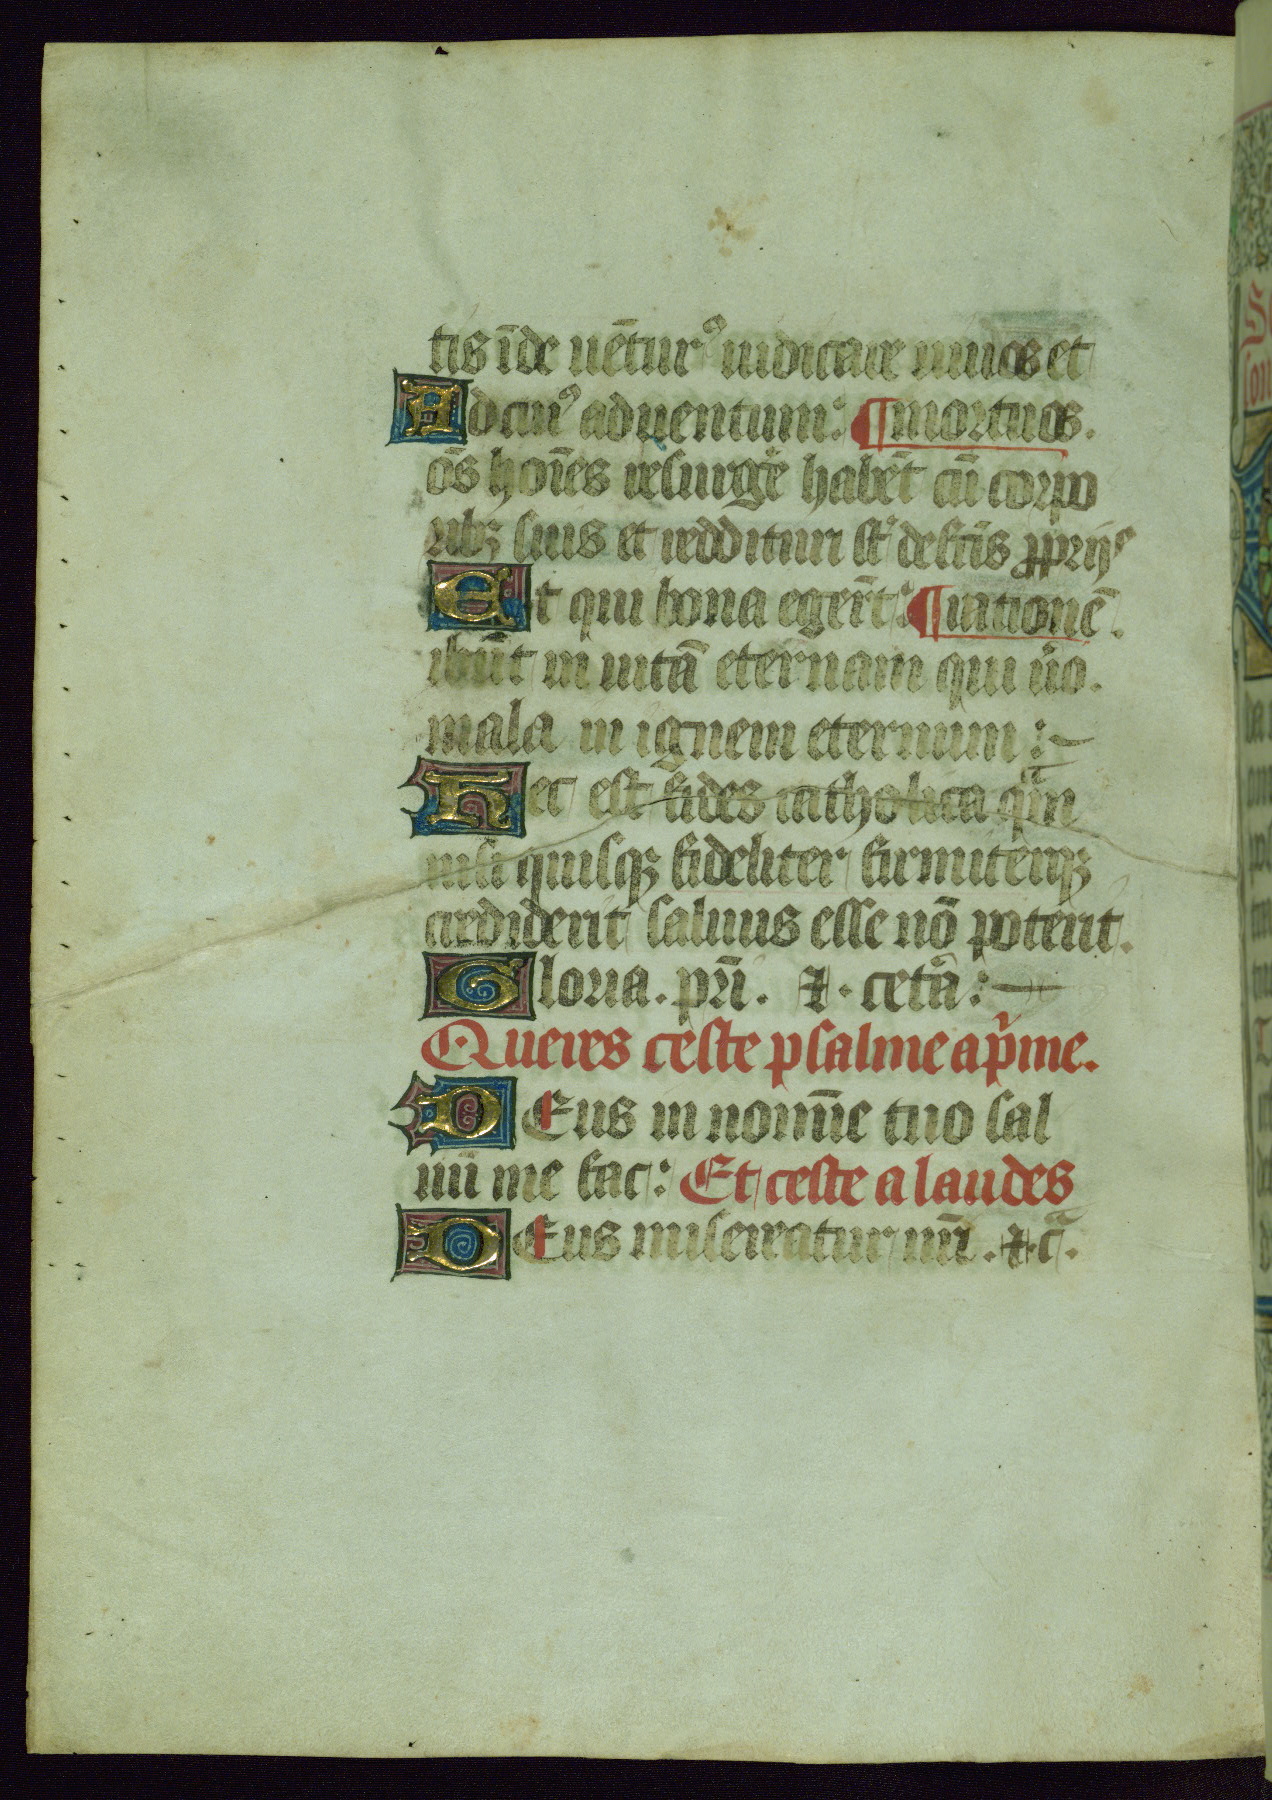 tis īde uētur⁹ iudicare uiuos et
Ad cui⁹ aduentum: ¶mortuos.
oēs hoīes resurge᷑ habēt cū corpo
ribꝫ suis et reddituri sūt de fctīs ꝓprijs
Et qui bona egerūt: ¶rationē.
ibūt in uitā eternam qui ūo.
mala in ignem eternum :~
Hec est fides catholica quā
nisi quisqꝫ fideliter firmiterqꝫ
crediderit saluus esse nō poterit.
Gloria. pri̅. ⁊. cetā:—
Queres ceste psalme a pīme.
DEus in nomīe tuo sal
uū me fac: Et ceste a laudes
DEus misereatur nrī. ⁊. c̄.